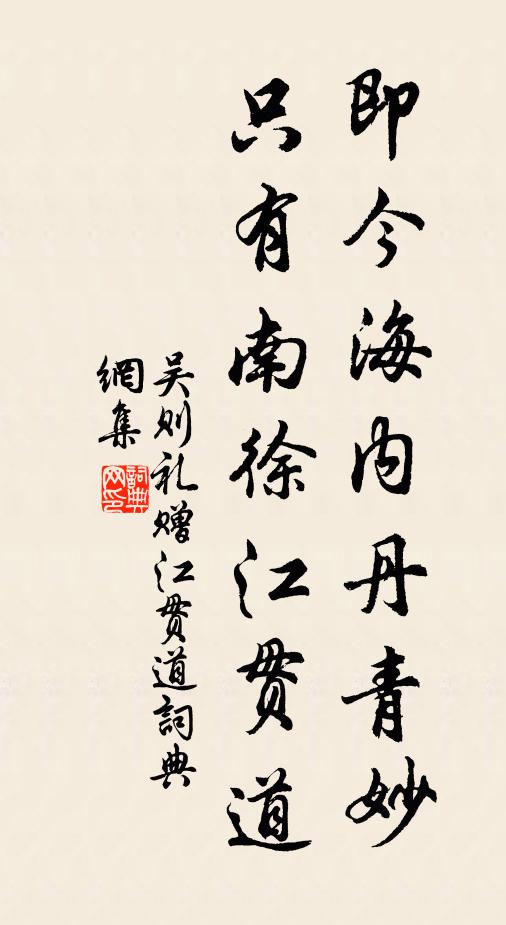 即今海内丹青妙
只有南徐江贯道
吴则礼赠江贯道詞典
網集
詞典網印